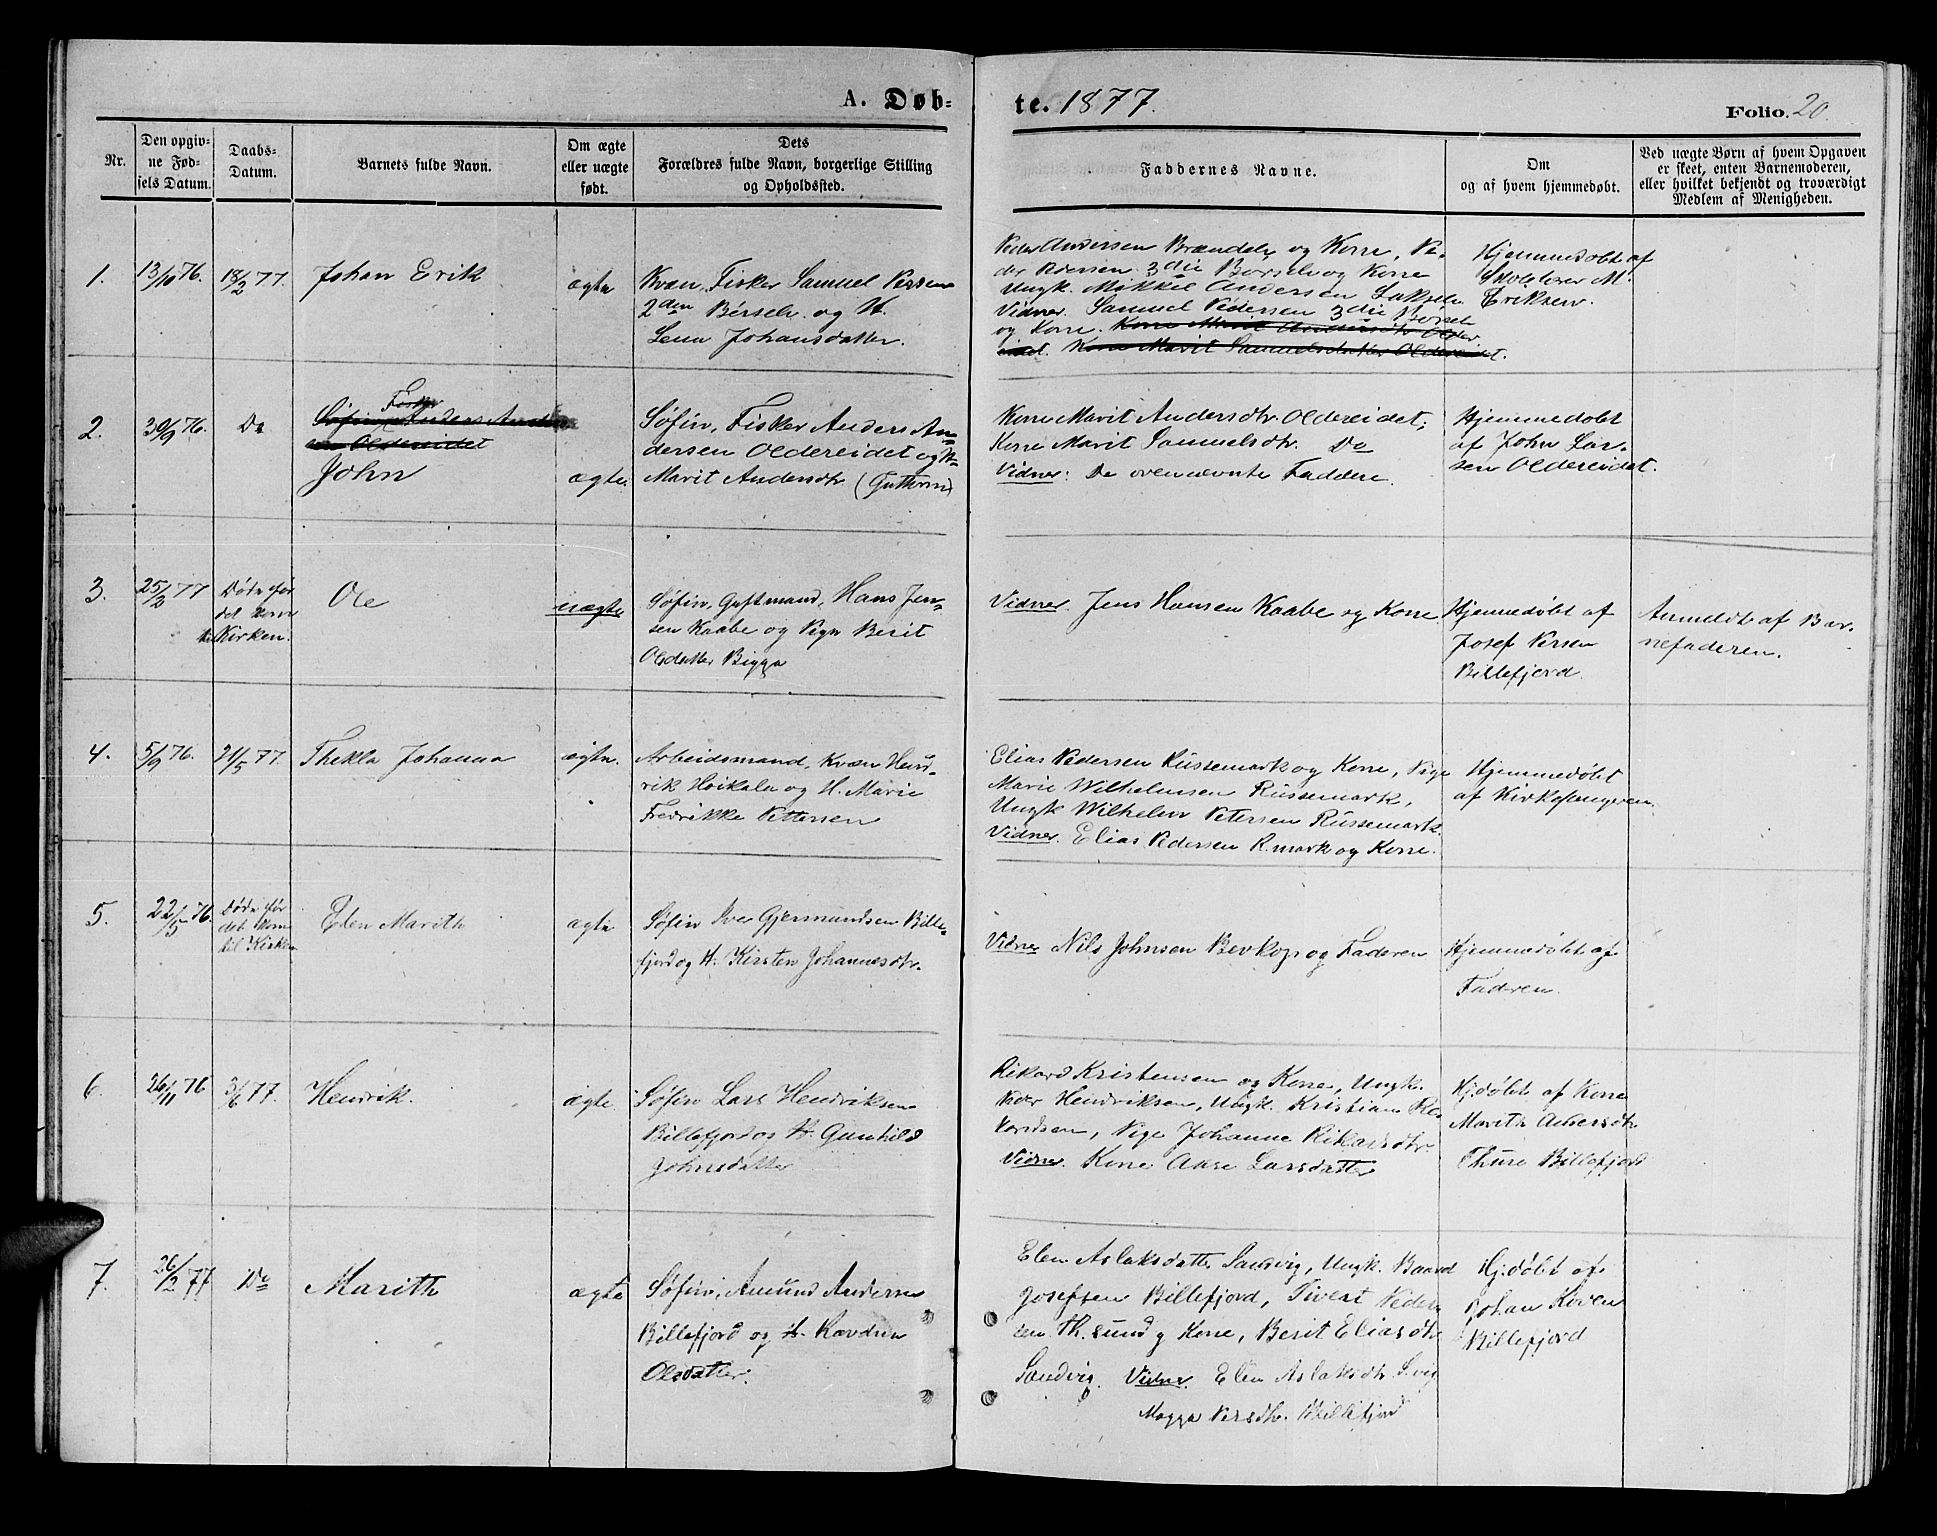 A. Døb-
te. 1877.
Folio. 20.
Nr.
Den opgiv-
ne Fød-
sels Datum.
Daabs-
Datum.
Barnets fulde Navn.
Om ægte
eller uægte
født.
Dets
Forældres fulde Navn, borgerlige Stilling
og Opholdssted.
Faddernes Navne.
Om
og af hvem hjemmedøbt.
Ved uægte Børn af hvem Opgaven
er skeet, enten Barnemoderen,
eller hvilket bekjendt og troværdigt
Medlem af Menigheden.
1.
13/10 76.
18/2 77.
Johan Erik
ægte
Kvæn, Fisker Samuel Persen
2den Børselv. og H.
Lena Johansdatter.
Peder Andersen Brændelv og Kone, Pe-
der Persen 3die Børselv og Kone
Ungk. Mikkel Andersen Lakselv.
Vidner. Samuel Pedersen 3die Børselv
og Kone. Kone Marit Andersdtr Older
eidet. Kone Marit Samuelsdatter Oldereidet.
Hjemmedøbt af
Skolelærer M.
Eriksen.
2.
30/9 76.
Do
Søfin, Fisker Anders Ander
sen Oldereidet
John
ægte
Søfin, Fisker Anders An-
dersen Oldereidet og H.
Marit Andersdtr (Guttorm)
Kone Marit Andersdtr. Oldereidet;
Kone Marit Samuelsdtr. Do
Vidner: De ovennævnte Faddere.
Hjemmedøbt
af John Lar-
sen Oldereidet.
3.
25/2 77
Døde før
det kom
til Kirken.
Ole
uægte
Søfin, Giftmand, Hans Jen-
sen Kaabe og Pige Berit
Olsdatter Bigga
Vidner. Jens Hansen Kaabe og Kone
Hjemmedøbt af
Josef Persen
Billefjord
Anmeldt af Bar-
nefaderen.
4.
5/9 76.
21/5 77.
Thekla Johanna
ægte.
Arbeidsmand, Kvæn Hend-
rik Hoikala og H. Marie
Fredrikke Pettersen
Elias Pedersen Russemark og Kone, Pige
Marie Wilhelmsen Russemark,
Ungk Wilhelm Petersen Russemark.
Vidner. Elias Pedersen R.mark og Kone.
Hjemmedøbt
af Kirkesangeren.
5.
22/5 76.
Døde før
det kom
til Kirken
Elen Marith
ægte
Søfin Iver Gjermundsen Bille-
fjord og H. Kirsten Johannesdtr.
Vidner Nils Johnsen Bevkop og Faderen
Hjemmedøbt af
Faderen.
6.
26/11 76
3/6 77.
Henrik.
ægte
Søfin Lars Hendriksen
Billefjord og H. Gunhild
Johnsdatter
Rikard Kristensen og Kone, Ungk.
Peder Hendriksen, Ungk. Kristian Ri-
kardsen, Pige Johanne Rikardsdtr
Vidner. Kone Aase Larsdatter
Hjdøbt af Kone
Marith Andersdtr
Thuse Billefjord
7.
26/2 77
Do
Marith
ægte
Søfin, Amund Andersen
Billefjord og H. Ravdna
Olsdatter.
Elen Aslaksdatter Sandvig, Ungk. Baard
Josefsen Billefjord, Sivert Peder-
sen Th.sund og Kone, Berit Eliasdtr
Sandvig. Vidner. Elen Aslaksdtr. S.vig
Magga Persdtr. Billefjord
Hjdøbt af
Johan Kiven
Billefjord